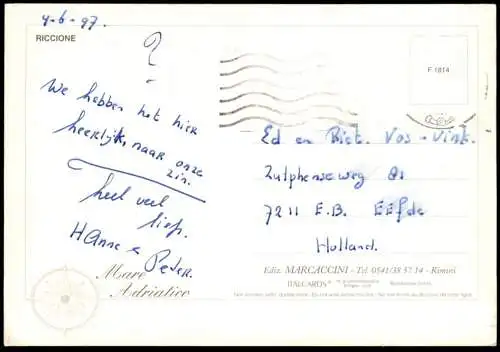 4-6-97.
RICCIONE
?
We hebben het hier
heerlijk naar onze
zin.
heel veel
liefs.
Hanne &
Peter.
F 1814
Ed en Riet. Vos-Vink.
Zutphenseweg 81
7211 E.B. EEfde
Holland.
Mare
Adriatico
Ediz. MARCACCINI - Tel. 0541/38 57 14 - Rimini
ITALCARDS